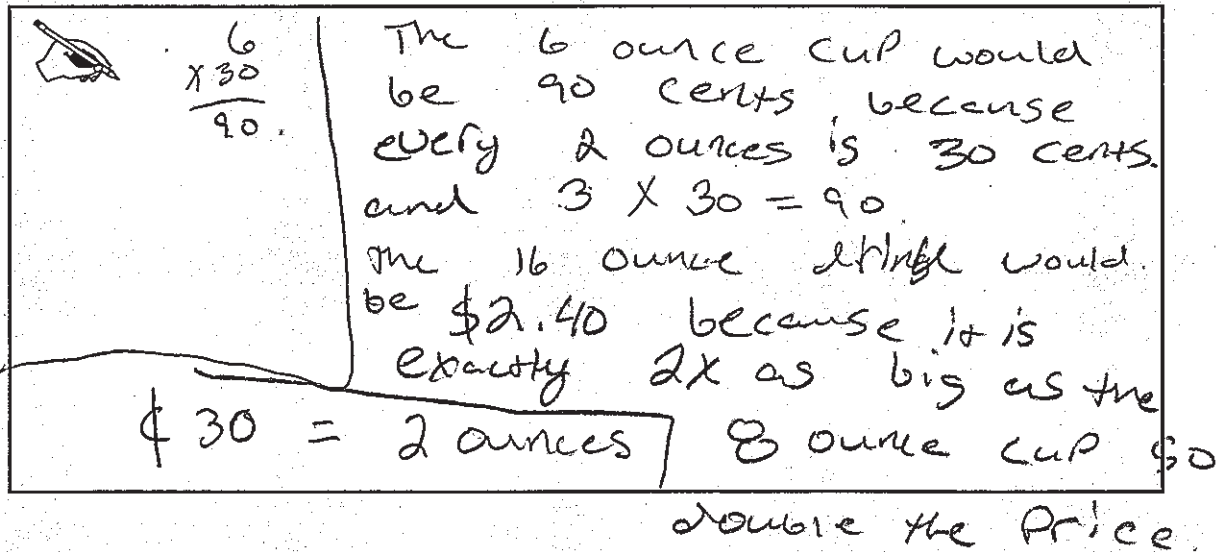 6
x 30
90.
The 6 ounce cup would
be 90 cents because
every 2 ounces is 30 cents.
and 3 x 30 = 90.
The 16 ounce would
be $2.40 because it is
exactly 2x as big as the
8 ounce cup so
double the price.
¢ 30 = 2 ounces